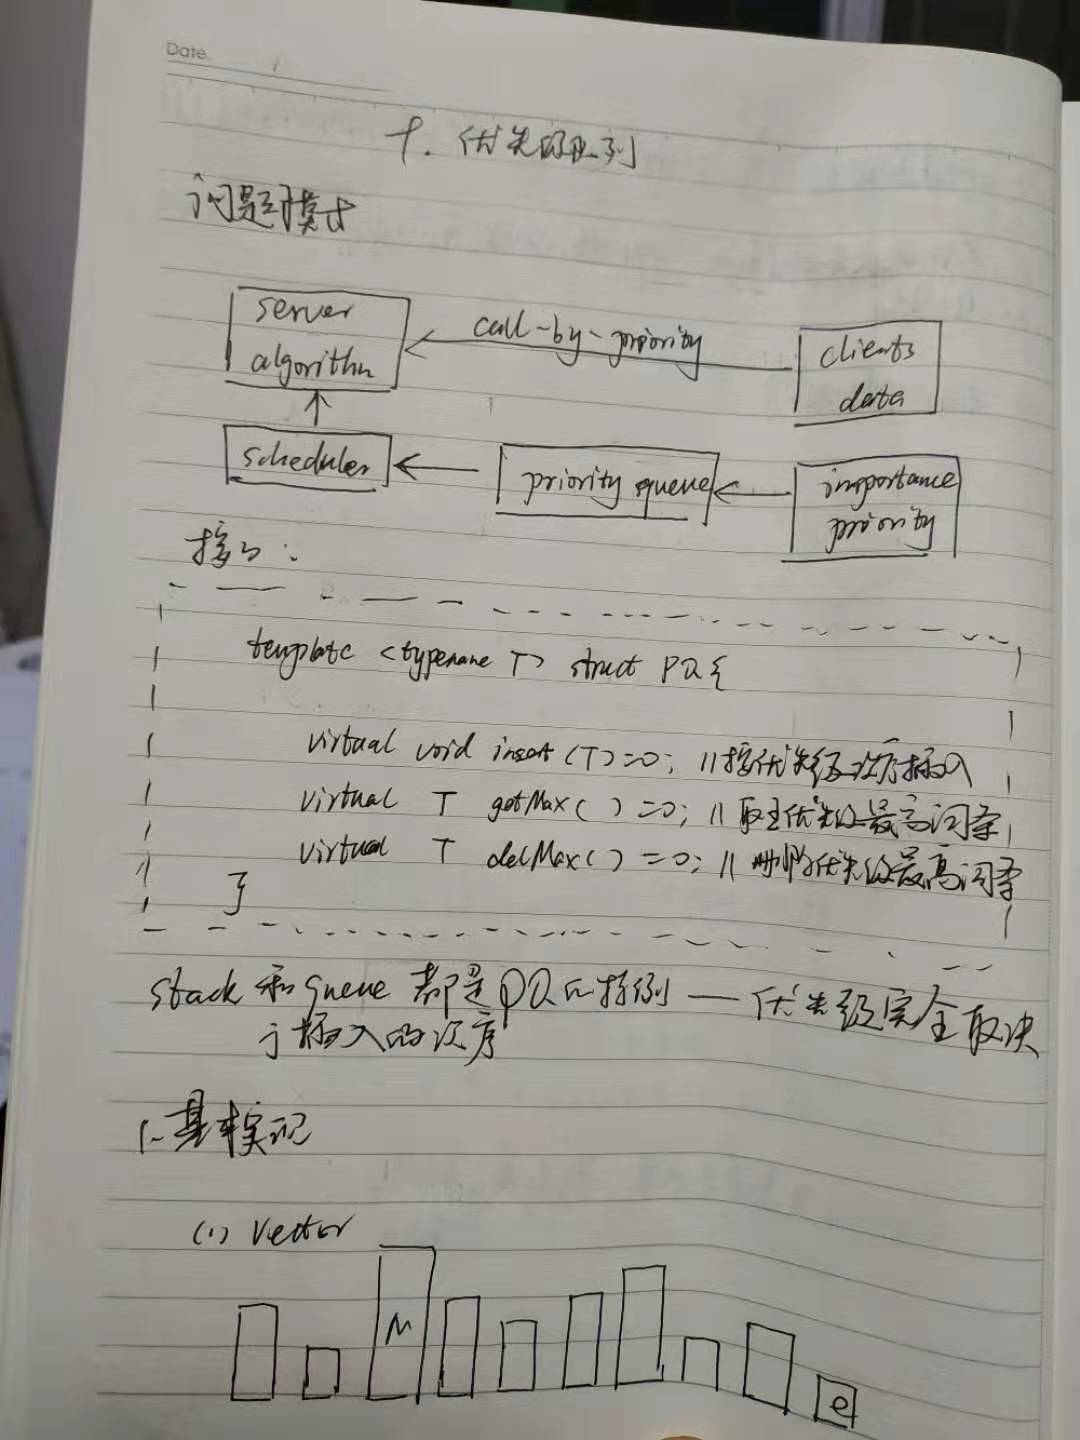 Date.
十. 优先级队列
问题模式
server
algorithm
call-by-priority
clients
data
scheduler
priority queue
importance
priority
接口:
template <typename T> struct PQ {
virtual void insert (T)=0; //按优先级次序插入
virtual T getMax( )=0; //取出优先级最高词条
virtual T delMax( )=0; //删除优先级最高词条
}
stack 和 queue 都是PQ的特例 — 优先级完全取决
于插入的次序
1. 基本实现
(1) Vector
M
e